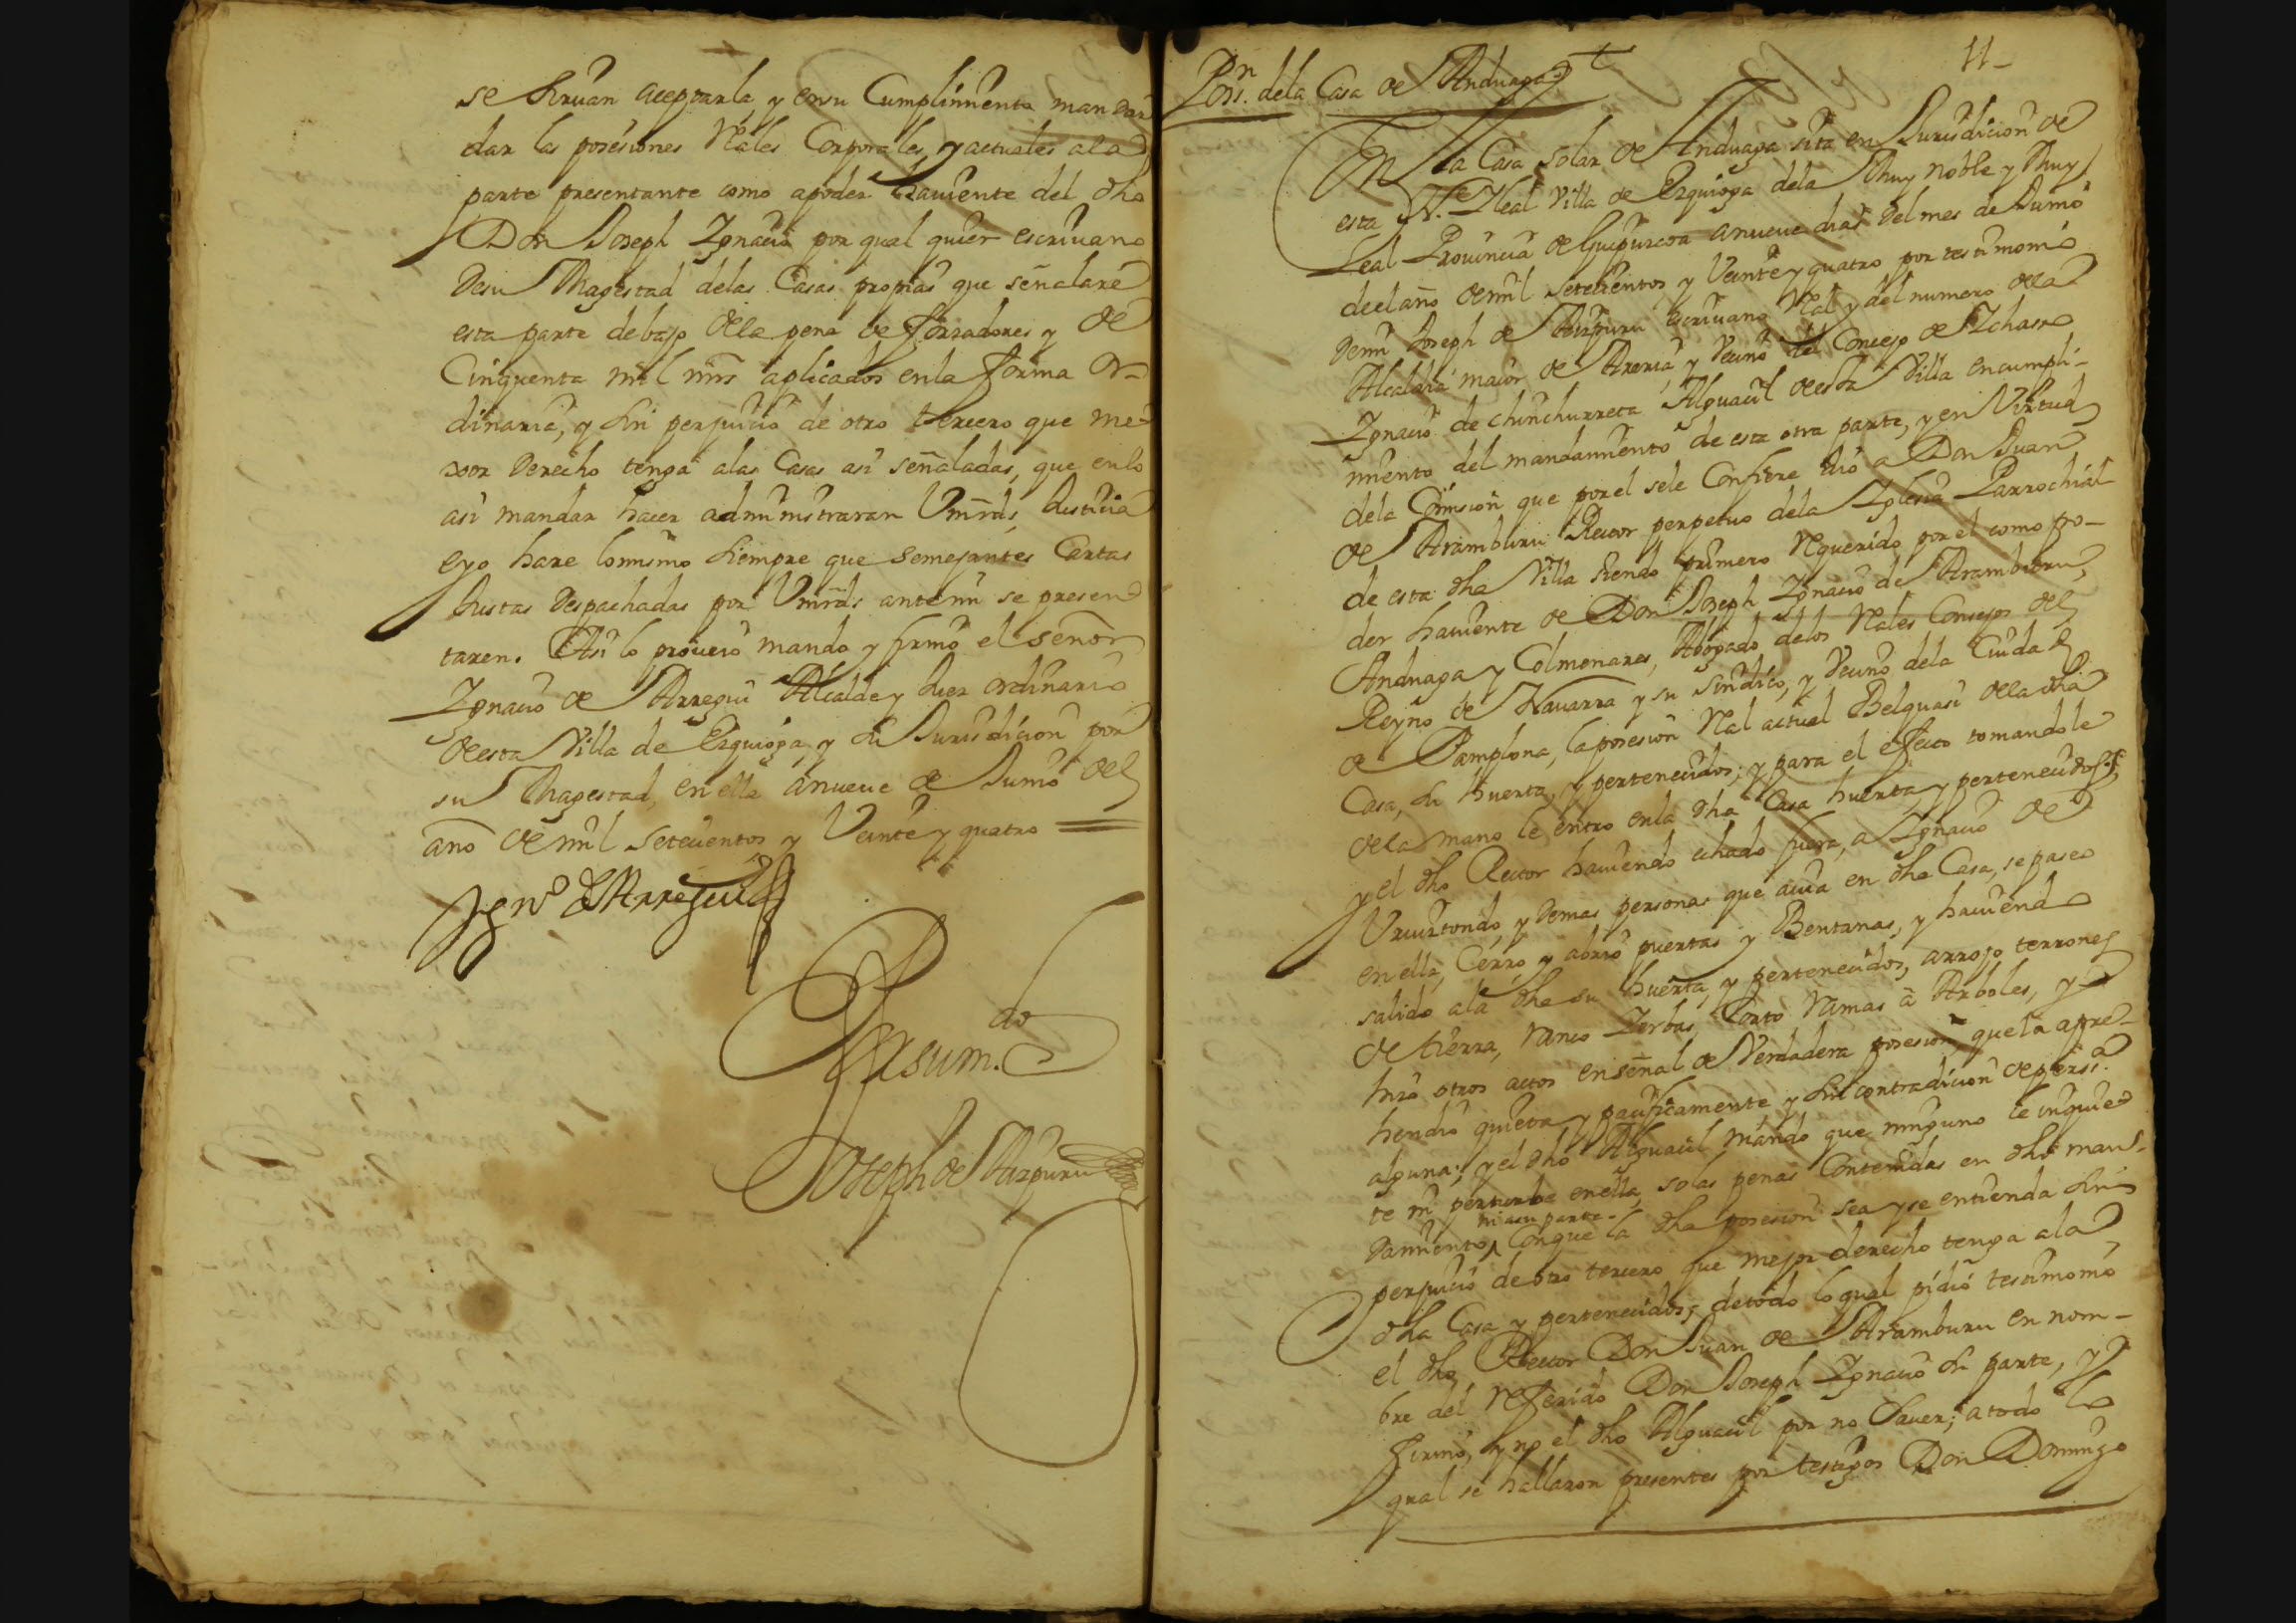 se siruan aceptarla, y ensu Cumplimiento mandar
dar las posesiones Rales Corporales, y actuales ala
parte presentante como apoder hauiente del dho
Don Joseph Ignacio por qual quier escriuano
desu Magestad delas Casas propias que señalare
esta parte debajo dela pena de forzadores y de
Cinquenta mil mrs aplicados enla forma or-
dinaria, y sin perjuicio de otro tercero que me-
xor derecho tenga alas Casas asi señaladas, que enlo
asi mandar hacer administraran Vmrds, Justicia
eyo hare lo mismo siempre que semejantes Cartas
Justas despachadas por Vmrds ante mi se presen
taren. Asi lo proueio mando y firmo el señor
Ignacio de Arregui Alcalde y Juez ordinario
de esta Villa de Ezquioga, y su Jurisdicion por
su Magestad, en ella anueue de Junio del
año de mil setecientos y Veinte y quatro
Igno de Arregui
Pasum.do
Joseph de Aizpuru
11-
Poss.n dela Casa de Anduaga
En la Casa solar de Anduaga sita en Jurisdicion de
esta N. Y leal Villa de Ezquioga dela Muy noble y Muy
Leal Prouincia de Guipuzcoa anueue dias del mes de Junio
de el año de mil setecientos, y Veinte y quatro por testimonio
demi Joseph de Aizpuru escriuano Ral y del numero dela
Alcaldia maior de Areria, y Vecino del Concejo de Ichaso
Ignacio de chinchurreta Alguacil de esta Villa encumpli-
miento del mandamiento de esta otra parte, y en Virtud
dela Comision que por el sele Confiere dio a Don Juan
de Aramburu Rector perpetuo dela Iglesia Parrochial
de esta dha Villa siendo primero Requerido por el como po-
der hauiente de Don Joseph Ignacio de Aramburu,
Anduaga y Colmenares, Abogado delos Rales Consejos del
Reyno de Nauarra y su sindico, y Vecino dela Ciudad
de Pamplona, la posesion Ral actual Belquasi dela dha
Casa, su huerta, y pertenecidos; y para el efecto tomandole
dela mano le entro enla dha Casa huerta, y pertenecidos,
y el dho Rector hauiendo echado fuera, a Ignacio de
Vrurtondo, y demas personas que auia en dha Casa, se paseo
en ella, Cerro y abrio puertas y Bentanas, y hauiendo
salido ala dha su huerta, y pertenecidos, arrojo terrones
de tierra, ranco Yerbas, Corto ramas â Arboles, y
hizo otros actos enseñal de Verdadera posesion que la apre-
hendio quieta y pacificamente y sin contradicion de persa
alguna; y el dho Alguacil mando que ninguno le inquie
te ni perturbe en ella, solas penas Contenidas en dho man-
damiento, Conque la dha posesion sea y se entienda sin
ni a su parte
perjuicio de otro tercero que mejor derecho tenga ala
dha Casa y pertenecidos, de todo lo qual pidió testimonio
el dho Rector Don Juan de Aramburu en nom-
bre del referido Don Joseph Ignacio su parte, y
firmó, y no el dho Alguacil por no sauer; a todo lo
qual se hallaron presentes por testigos Don Domingo